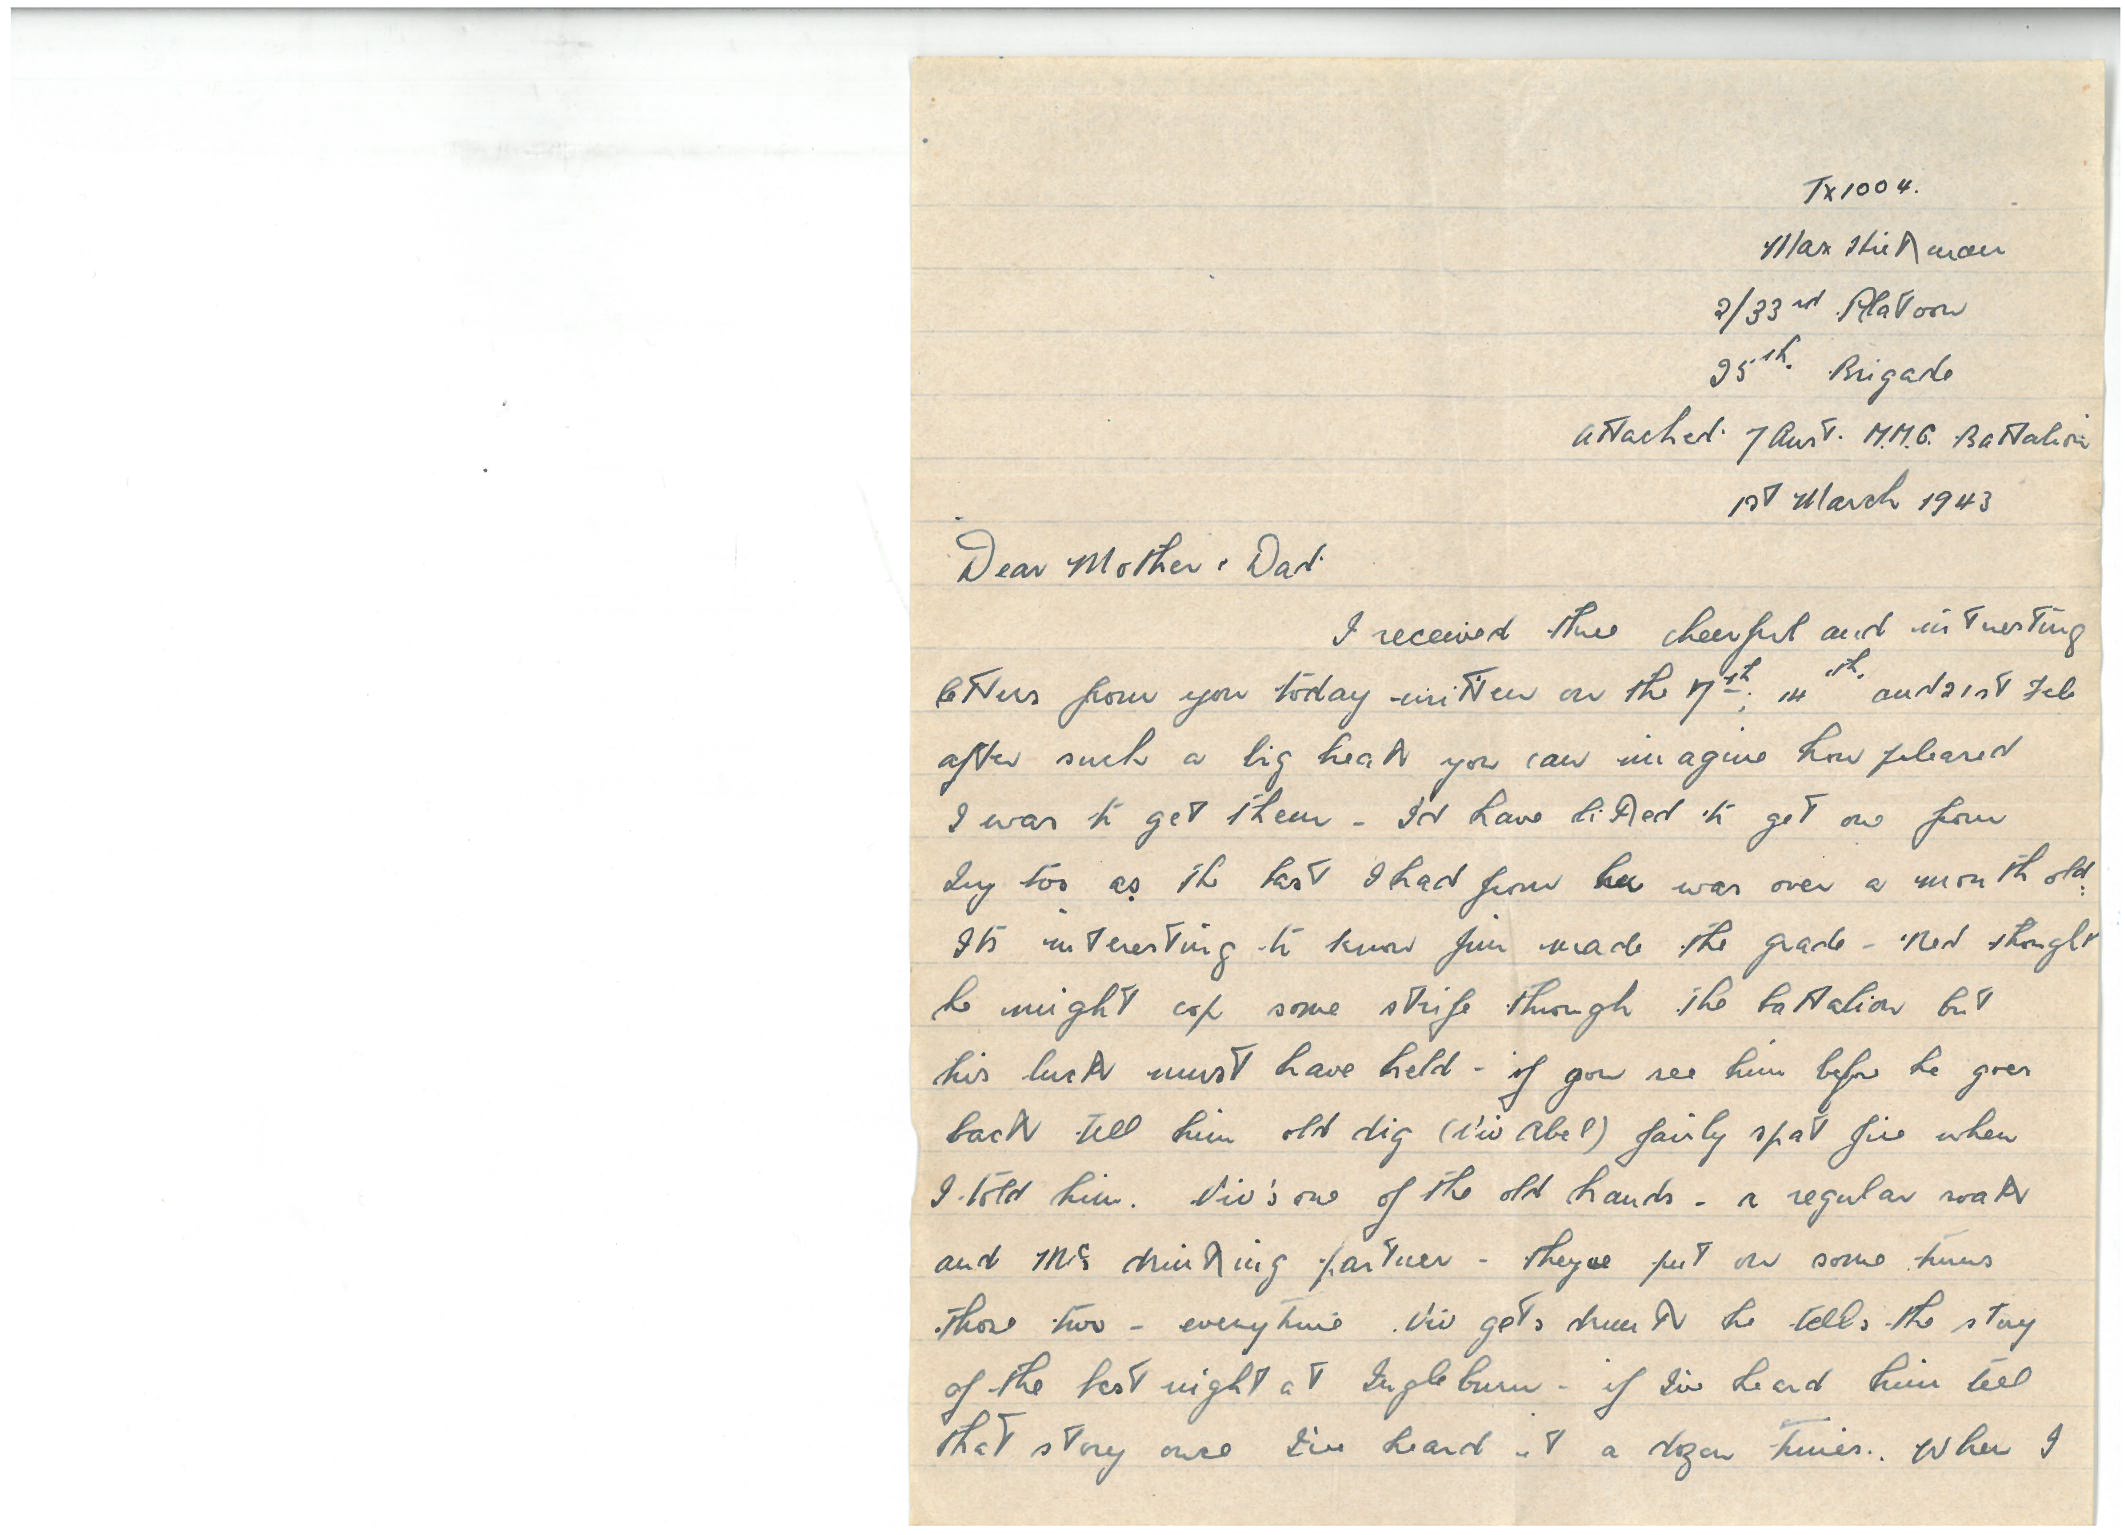 Tx1004.
Max Hickman
2/33rd Platoon
25th. Brigade
Attached 7 Aust. M.M.G. Battalion
1st March 1943
Dear Mother & Dad
I received three cheerful and intresting
letters from you today written on the 7th, 14th. and 21st Feb
after such a big break you can imagine how pleased
I was to get them - I'd have liked to get one from
too as the last I had from her was over a month old.
Its interesting to know Jim made the grade - Ned thought
he might cop some strife through the battalion but
his luck must have held - if you see him before he goes
back tell him old dig (Viv Abel) fairly spat fire when
I told him. Viv's one of the old hands - a regular soak
and drinking partner - theyve put on some turns
those two - everytime Viv gets drunk he tells the story
of the last night at Ingleburn - if I've heard him tell
that story once I've heard it a dozen times. When I